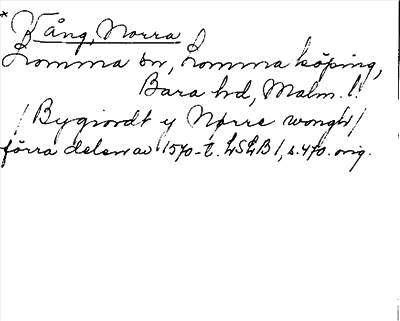 * Vång, Norra
Lomma sn, Lomma köping,
Bara hd, Malm. l.
/Bygiordt y Nørre wongh/
förra delen av 1570-t. LSLB 1, s. 470. orig.